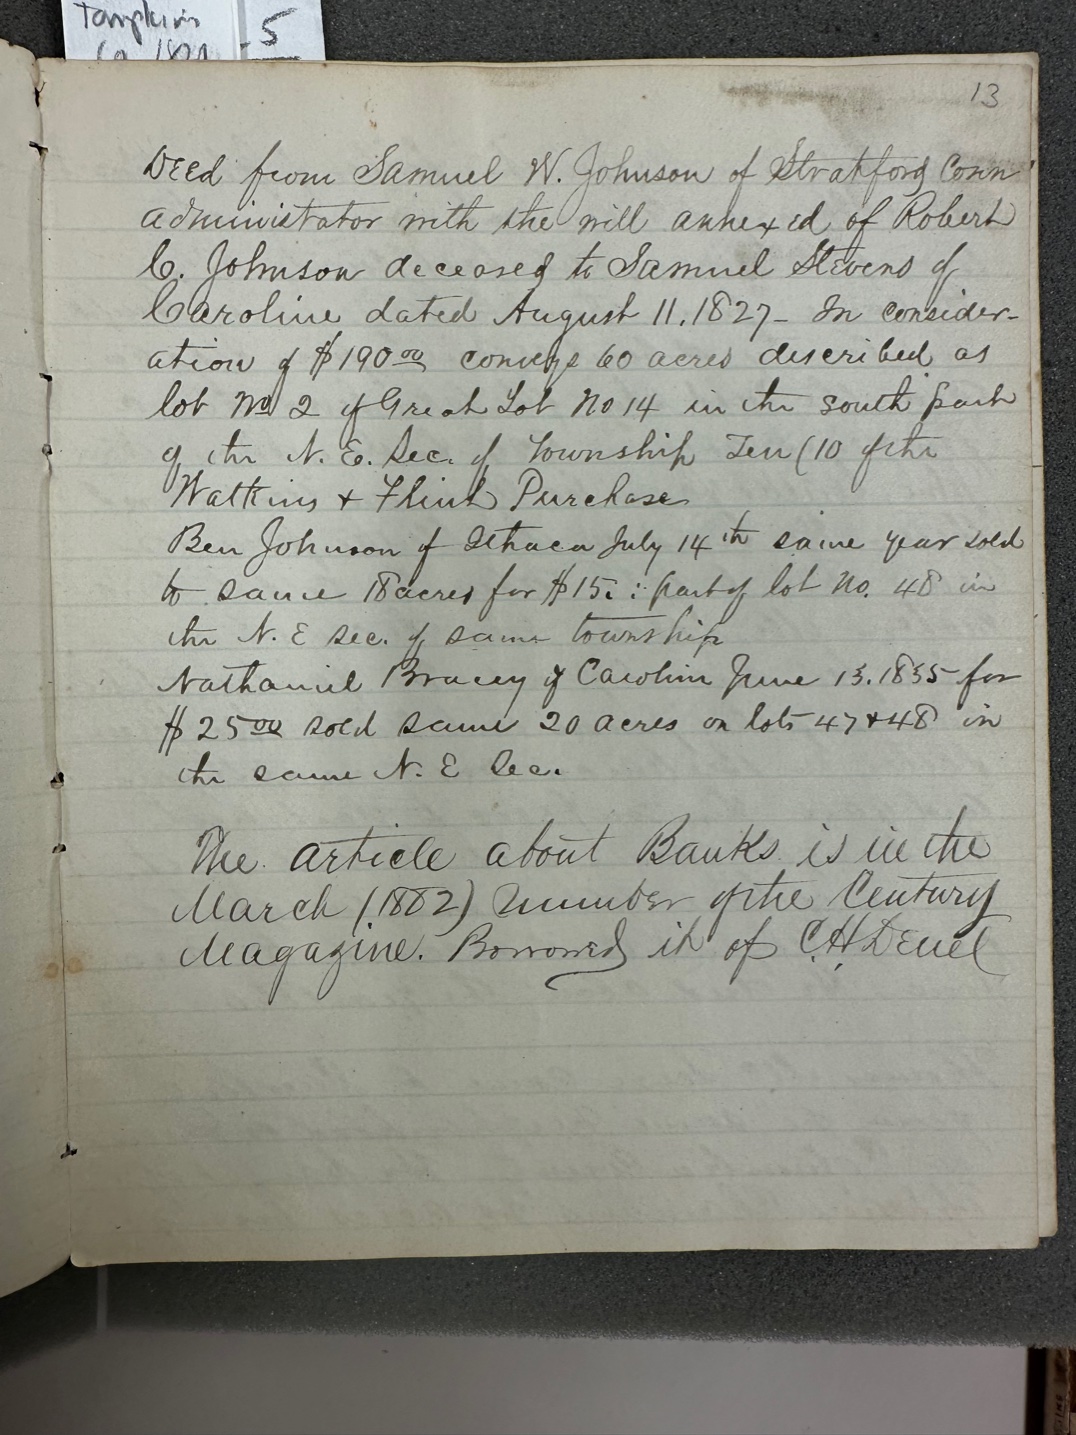 Tompkins
5
13
Deed from Samuel W. Johnson of Stratford Conn
administrator with the will annexed of Robert
C. Johnson deceased to Samuel Stevens of
Caroline dated August 11. 1827 - In consider-
ation of $190 00 conveys 60 acres described as
lot No 2 of Great Lot No 14 in the south part
of the N. E. Sec. of Township Ten (10 of the
Watkins & Flint Purchase
Ben Johnson of Ithaca July 14th same year sold
to same 18 acres for $15 : part of lot No. 48 in
the N. E sec. of same township
Nathaniel Bracey of Caroline June 13. 1835 for
$25 00 sold same 20 acres on lots 47 & 48 in
the same N. E Sec.
The article about Banks is in the
March (1882) number of the Century
Magazine. Borrowed it of C. H. Deuel